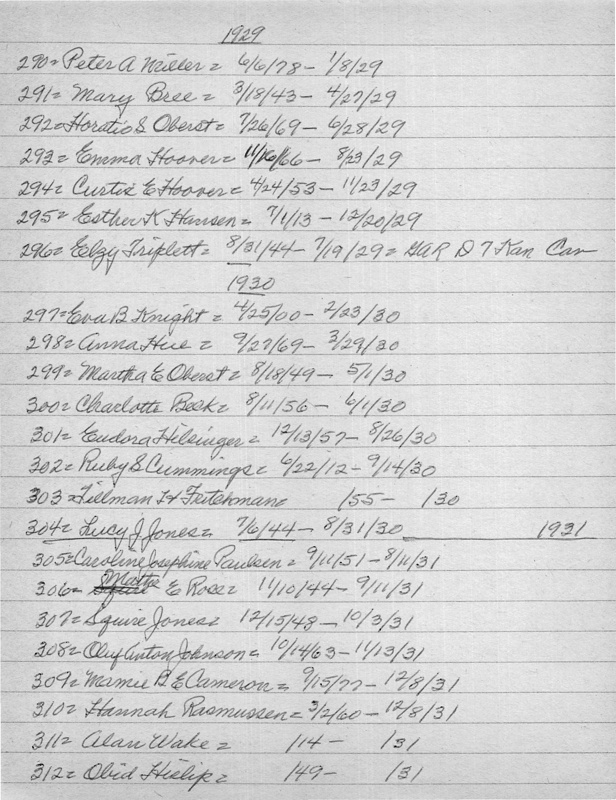 1929
290= Peter A Miller = 6/6/78 - 1/8/29
291= Mary Bree = 3/18/43 - 4/27/29
292= Horatio S Oberst = 7/26/69 - 6/28/29
293= Emma Hoover = 11/26/66 - 8/23/29
294= Curtis E Hoover = 4/24/53 - 11/23/29
295= Esther K Hansen = 7/1/13 - 12/20/29
296= Elzy Triplett = 8/31/44 - 7/19/29 = GAR D 7 Kan Cav
1930
297= Eva B Knight = 4/25/00 - 2/23/30
298= Anna Hue = 9/27/69 - 3/29/30
299= Martha E Oberst = 8/18/49 - 5/1/30
300= Charlotte Beek = 8/11/56 - 6/1/30
301= Eudora Hilsinger = 12/13/57 - 8/26/30
302= Ruby S Cummings = 6/22/12 - 9/14/30
303= Tillman H Fritchman = /55 - /30
304= Lucy J Jones = 7/6/44 - 8/31/30 1931
305= Caroline Josephine Paulsen = 9/11/51 - 8/11/31
306= Mattie E Rose = 11/10/44 - 9/11/31
307= Squire Jones = 12/15/48 - 10/3/31
308= Oluf Anton Johnson = 10/14/63 - 11/13/31
309= Mamie B E Cameron = 9/15/77 - 12/8/31
310= Hannah Rasmussen = 3/2/60 - 12/8/31
311= Alan Wake = /14 - /31
312= Obid Hislip = /49 - /31